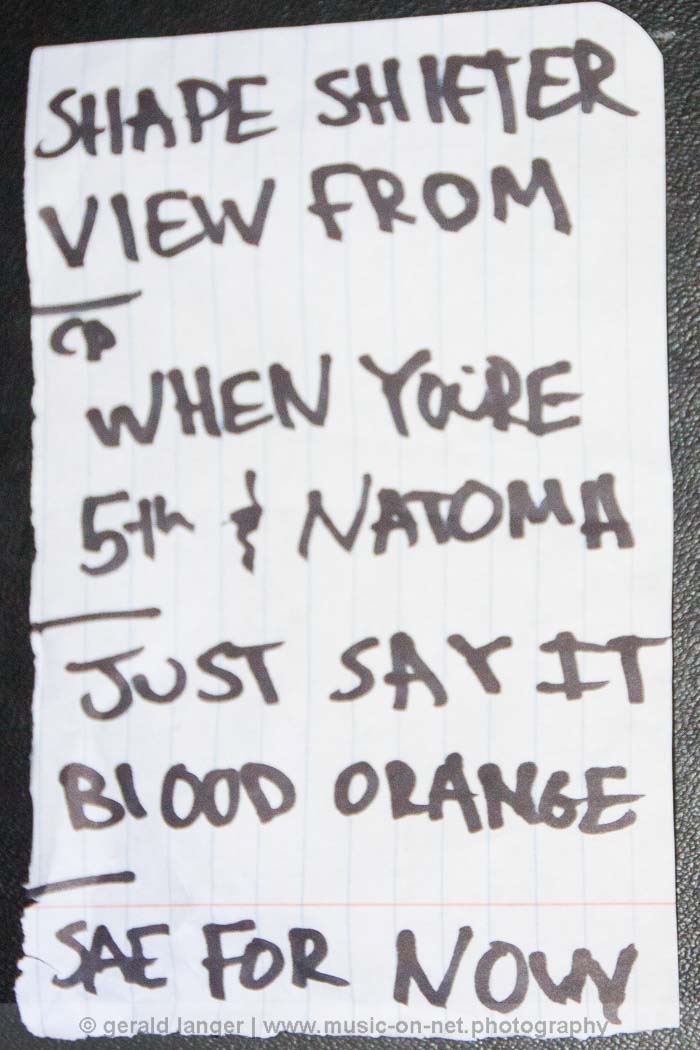 SHAPE SHIFTER
VIEW FROM
WHEN YOU'RE
5th & NATOMA
JUST SAY IT
BLOOD ORANGE
SAE FOR NOW
© gerald langer | www.music-on-net.photography